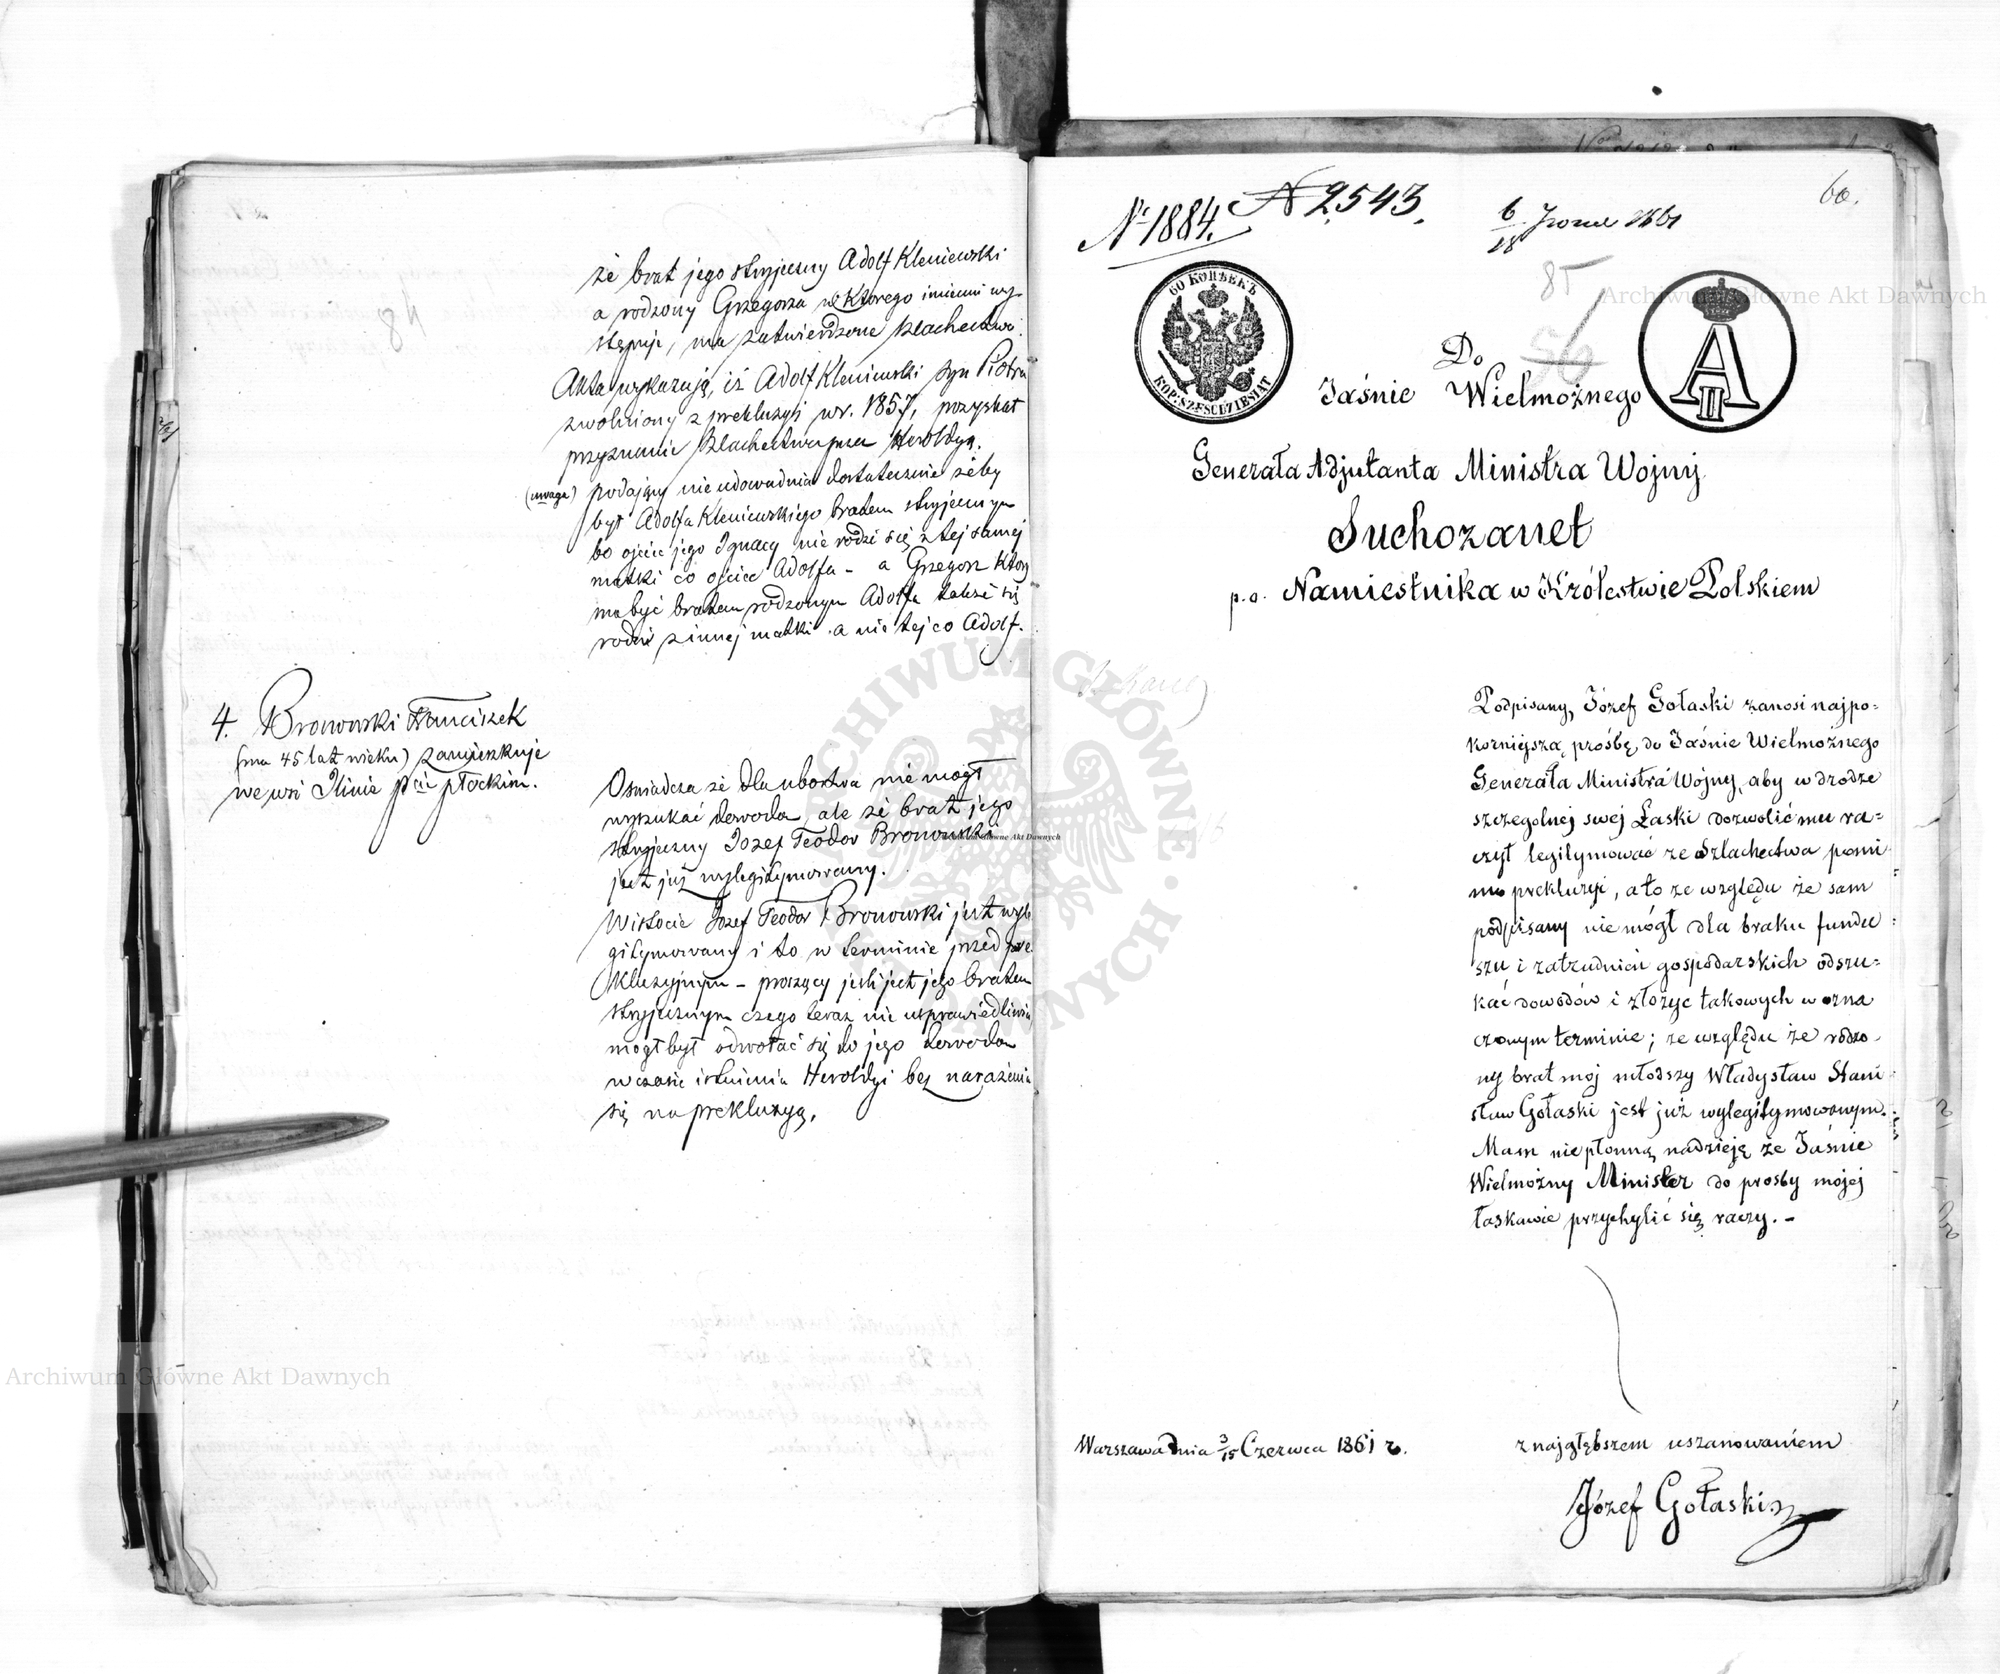 że brat jego stryjeczny Adolf Kleniewski
a rodzony Grzegorza w którego imieniu wy-
stępuje, ma zatwierdzone szlachectwo:
Akta wykazują, iż Adolf Kleniewski syn Piotra
zwolniony z prekluzyi w r. 1857, pozyskał
przyznanie szlachectwa przez Heroldyą.
(uwaga) podający nie udowadnia dostatecznie żeby
był Adolfa Kleniewskiego bratem stryjecznym
bo ojciec jego Ignacy nie rodzi się z tej samej
matki co ojciec Adolfa - a Grzegorz który
ma być bratem rodzonym Adolfa także się
rodzi z innej matki a nie tej co Adolf.
4. Bronowski Franciszek
(ma 45 lat wieku) zamieszkuje
we wsi Ilinie pcie płockim.
Oświadcza że dla ubóstwa nie mógł
wyszukać dowodów, ale że brat jego
stryjeczny Józef Teodor Bronowski
jest już wylegitymowany.
W istocie Józef Teodor Bronowski jest wyle
gitymowany i to w terminie przed pre-
kluzyjnym - proszący jeśli jest jego bratem
stryjecznym czego teraz nie usprawiedliwia
mógł był odwołać się do jego dowodów
w czasie istnienia Heroldyi bez narażenia
się na prekluzyą.
48
60.
№ 1884. № 2543.
6/18 1861
85
56
60 КОПѢЕКЪ
KOP: SZEŚĆDZIESIĄT
A II
Do
Jaśnie Wielmożnego
Generała Adjutanta Ministra Wojny
Suchozanet
p.o. Namiestnika w Królestwie Polskiem
Podpisany, Józef Gołaski zanosi najpo-
korniejszą prośbę, do Jaśnie Wielmożnego
Generała Ministra Wojny, aby w drodze
szczególnej swej Łaski dozwolić mu ra-
czył legitymować ze Szlachectwa pomi
mo prekluzyi, a to ze względu że sam
podpisany nie mógł dla braku fundu
szu i zatrudnień gospodarskich odszu-
kać dowodów i złożyć takowych w ozna
czonym terminie; ze względu że rodzo-
ny brat mój młodszy Władysław Stani
sław Gołaski jest już wylegitymowanym.
Mam nie płonną nadzieję że Jaśnie
Wielmożny Minister do prośby mojej
łaskawie przychylić się raczy. -
Warszawa dnia 3/15 Czerwca 1861 r.
z najgłębszem uszanowaniem
Józef Gołaski
Archiwum Główne Akt Dawnych
Archiwum Główne Akt Dawnych
Archiwum Główne Akt Dawnych
ARCHIWUM GŁÓWNE AKT DAWNYCH